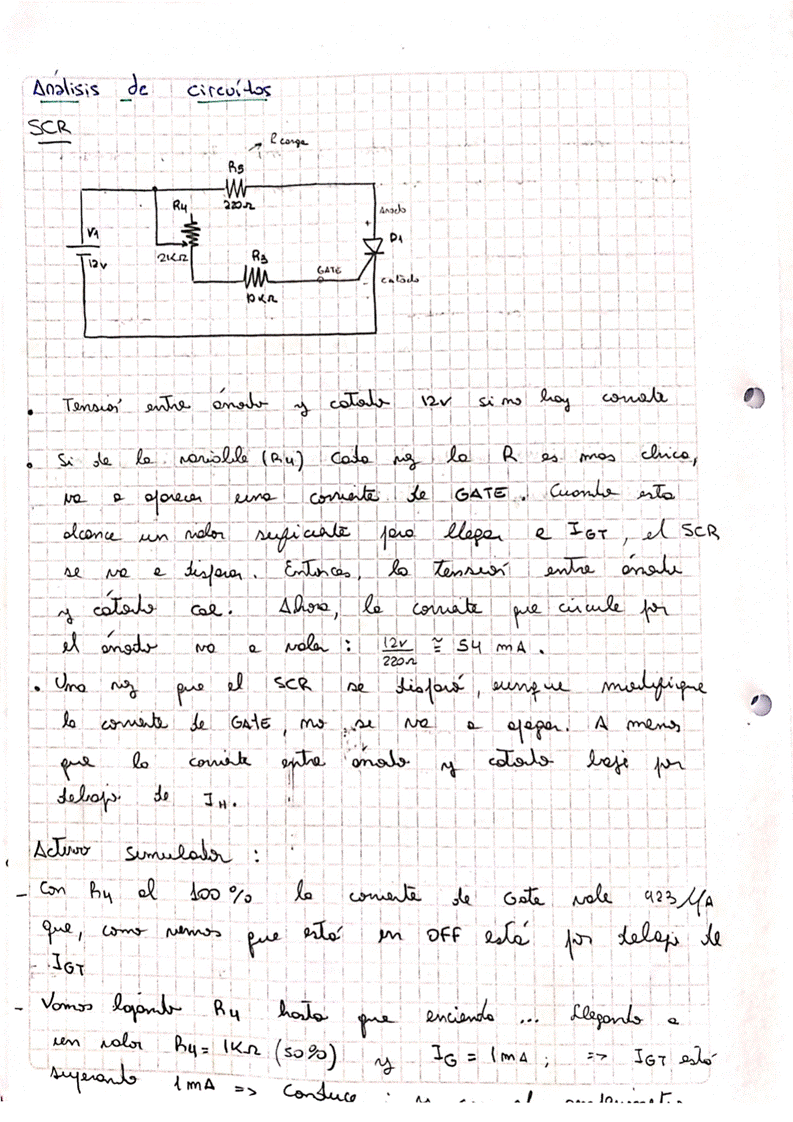 Análisis de circuítos
SCR
R carga
R5
220Ω
R4
2KΩ
V1
12V
R3
10KΩ
GATE
Anodo
+
D1
-
catodo
• Tensión entre ánodo y catodo 12v si no hay corriente
• Si de la variable (R4) cada vez la R es mas chica,
va a aparecer una corriente de GATE. Cuando esta
alcance un valor suficiente para llegar a IGT, el SCR
se va a disparar. Entonces, la tensión entre ánodo
y cátodo cae. Ahora, la corriente que circule por
el ánodo va a valer : 12v/220Ω ≅ 54 mA.
• Una vez que el SCR se disparó, aunque modifique
la corriente de GATE, no se va a apagar. A menos
que la corriente entre ánodo y catodo baje por
debajo de IH.
Activo simulador :
- Con R4 al 100% la corriente de Gate vale 923μA
que, como vemos que está en OFF está por debajo de
IGT
- Vamos bajando R4 hasta que encienda ... llegando a
un valor R4= 1KΩ (50%) y IG = 1mA; => IGT está
superando 1mA => Conduce :